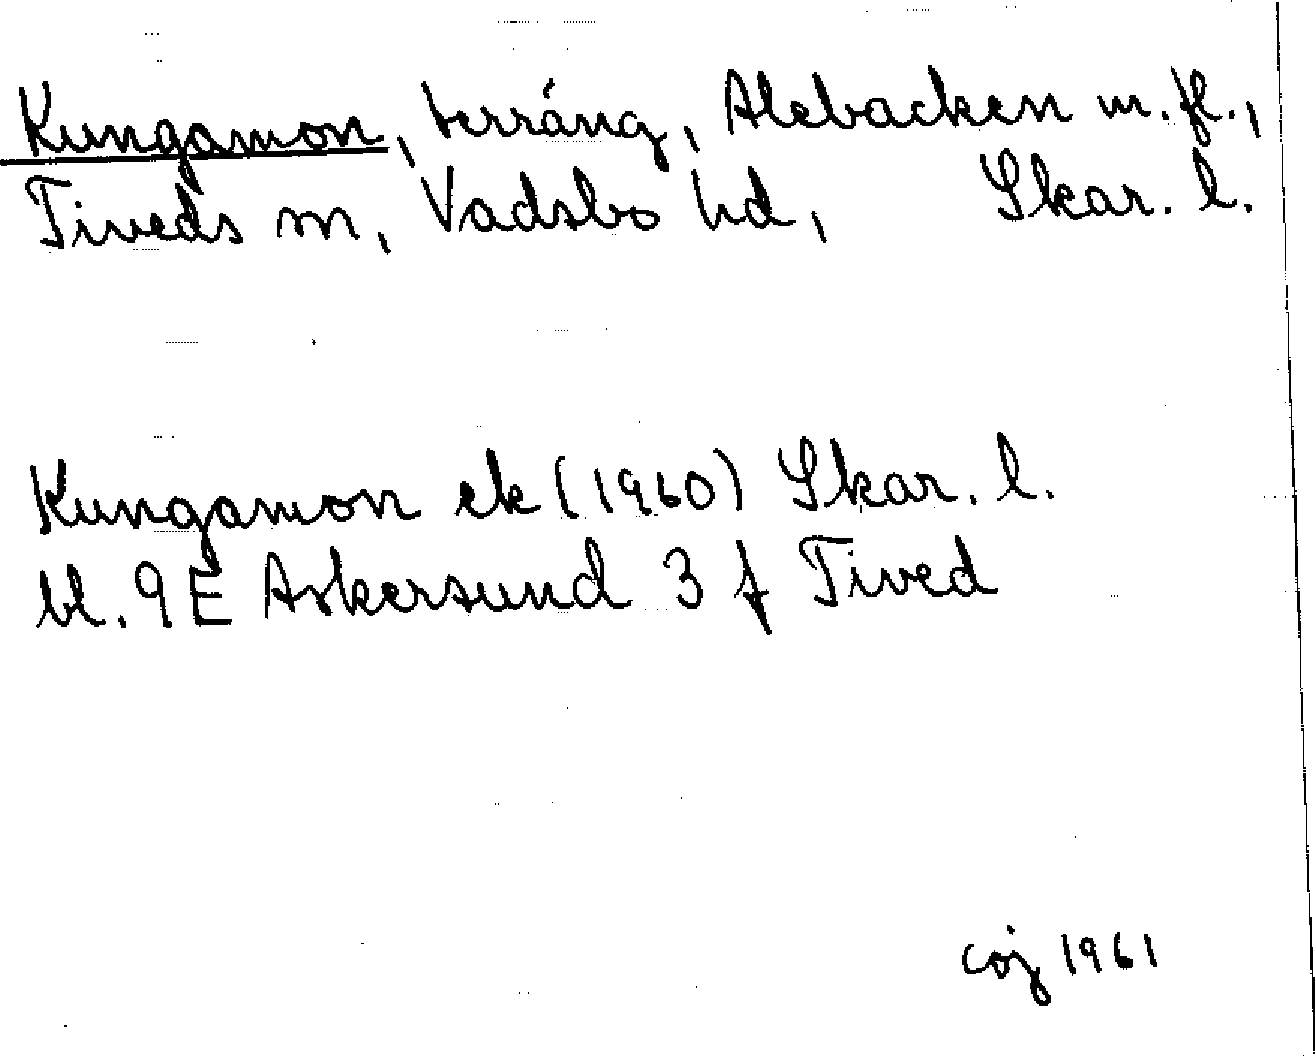 Kungamon, terräng, Alebacken m. fl.,
Tiveds sn, Vadsbo hd, Skar. l.
Kungamon ek (1960) Skar. l.
bl. 9E Askersund 3 f Tived
1961